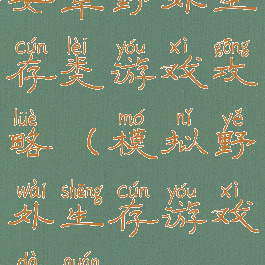 cún lèi yóu xì gōng
存类游戏攻
lüè mó nǐ yě
略(模拟野
wài shēng cún yóu xì
外生存游戏